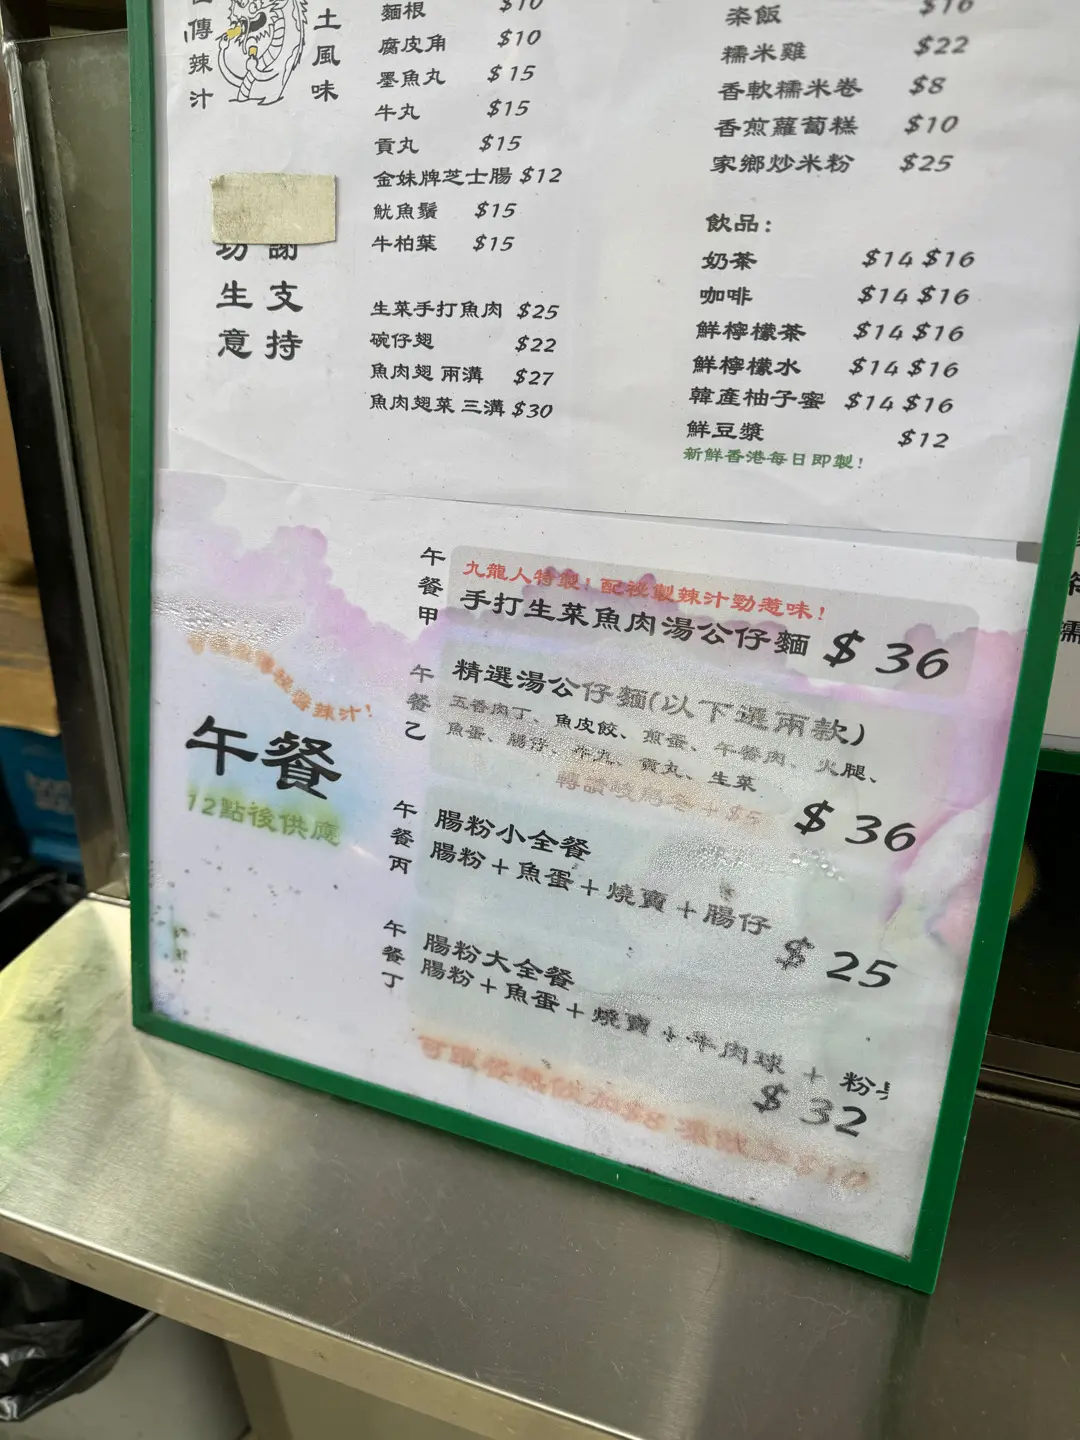 傳辣汁
土風味
功生意
謝支持
麵根 $10
腐皮角 $10
墨魚丸 $15
牛丸 $15
貢丸 $15
金妹牌芝士腸 $12
魷魚鬚 $15
牛柏葉 $15
生菜手打魚肉 $25
碗仔翅 $22
魚肉翅 兩溝 $27
魚肉翅菜 三溝 $30
飯 $16
糯米雞 $22
香軟糯米卷 $8
香煎蘿蔔糕 $10
家鄉炒米粉 $25
飲品:
奶茶 $14 $16
咖啡 $14 $16
鮮檸檬茶 $14 $16
鮮檸檬水 $14 $16
韓產柚子蜜 $14 $16
鮮豆漿 $12
新鮮香港每日即製!
辣汁!
午餐
12點後供應
午餐甲
九龍人特製! 配秘製辣汁勁惹味!
手打生菜魚肉湯公仔麵 $36
午餐乙
精選湯公仔麵(以下選兩款)
五香肉丁、魚皮餃、煎蛋、午餐肉、火腿、
魚蛋、腸仔、牛丸、貢丸、生菜
+$5
$36
午餐丙
腸粉小全餐
腸粉+魚蛋+燒賣+腸仔
$25
午餐丁
腸粉大全餐
腸粉+魚蛋+燒賣+牛肉球 + 粉
$32
加$8 凍飲 $10